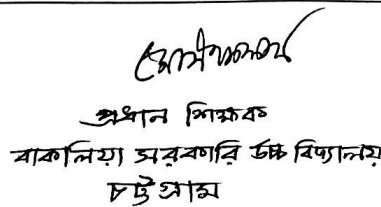 প্রধান শিক্ষক
বাকলিয়া সরকারি উচ্চ বিদ্যালয়
চট্টগ্রাম